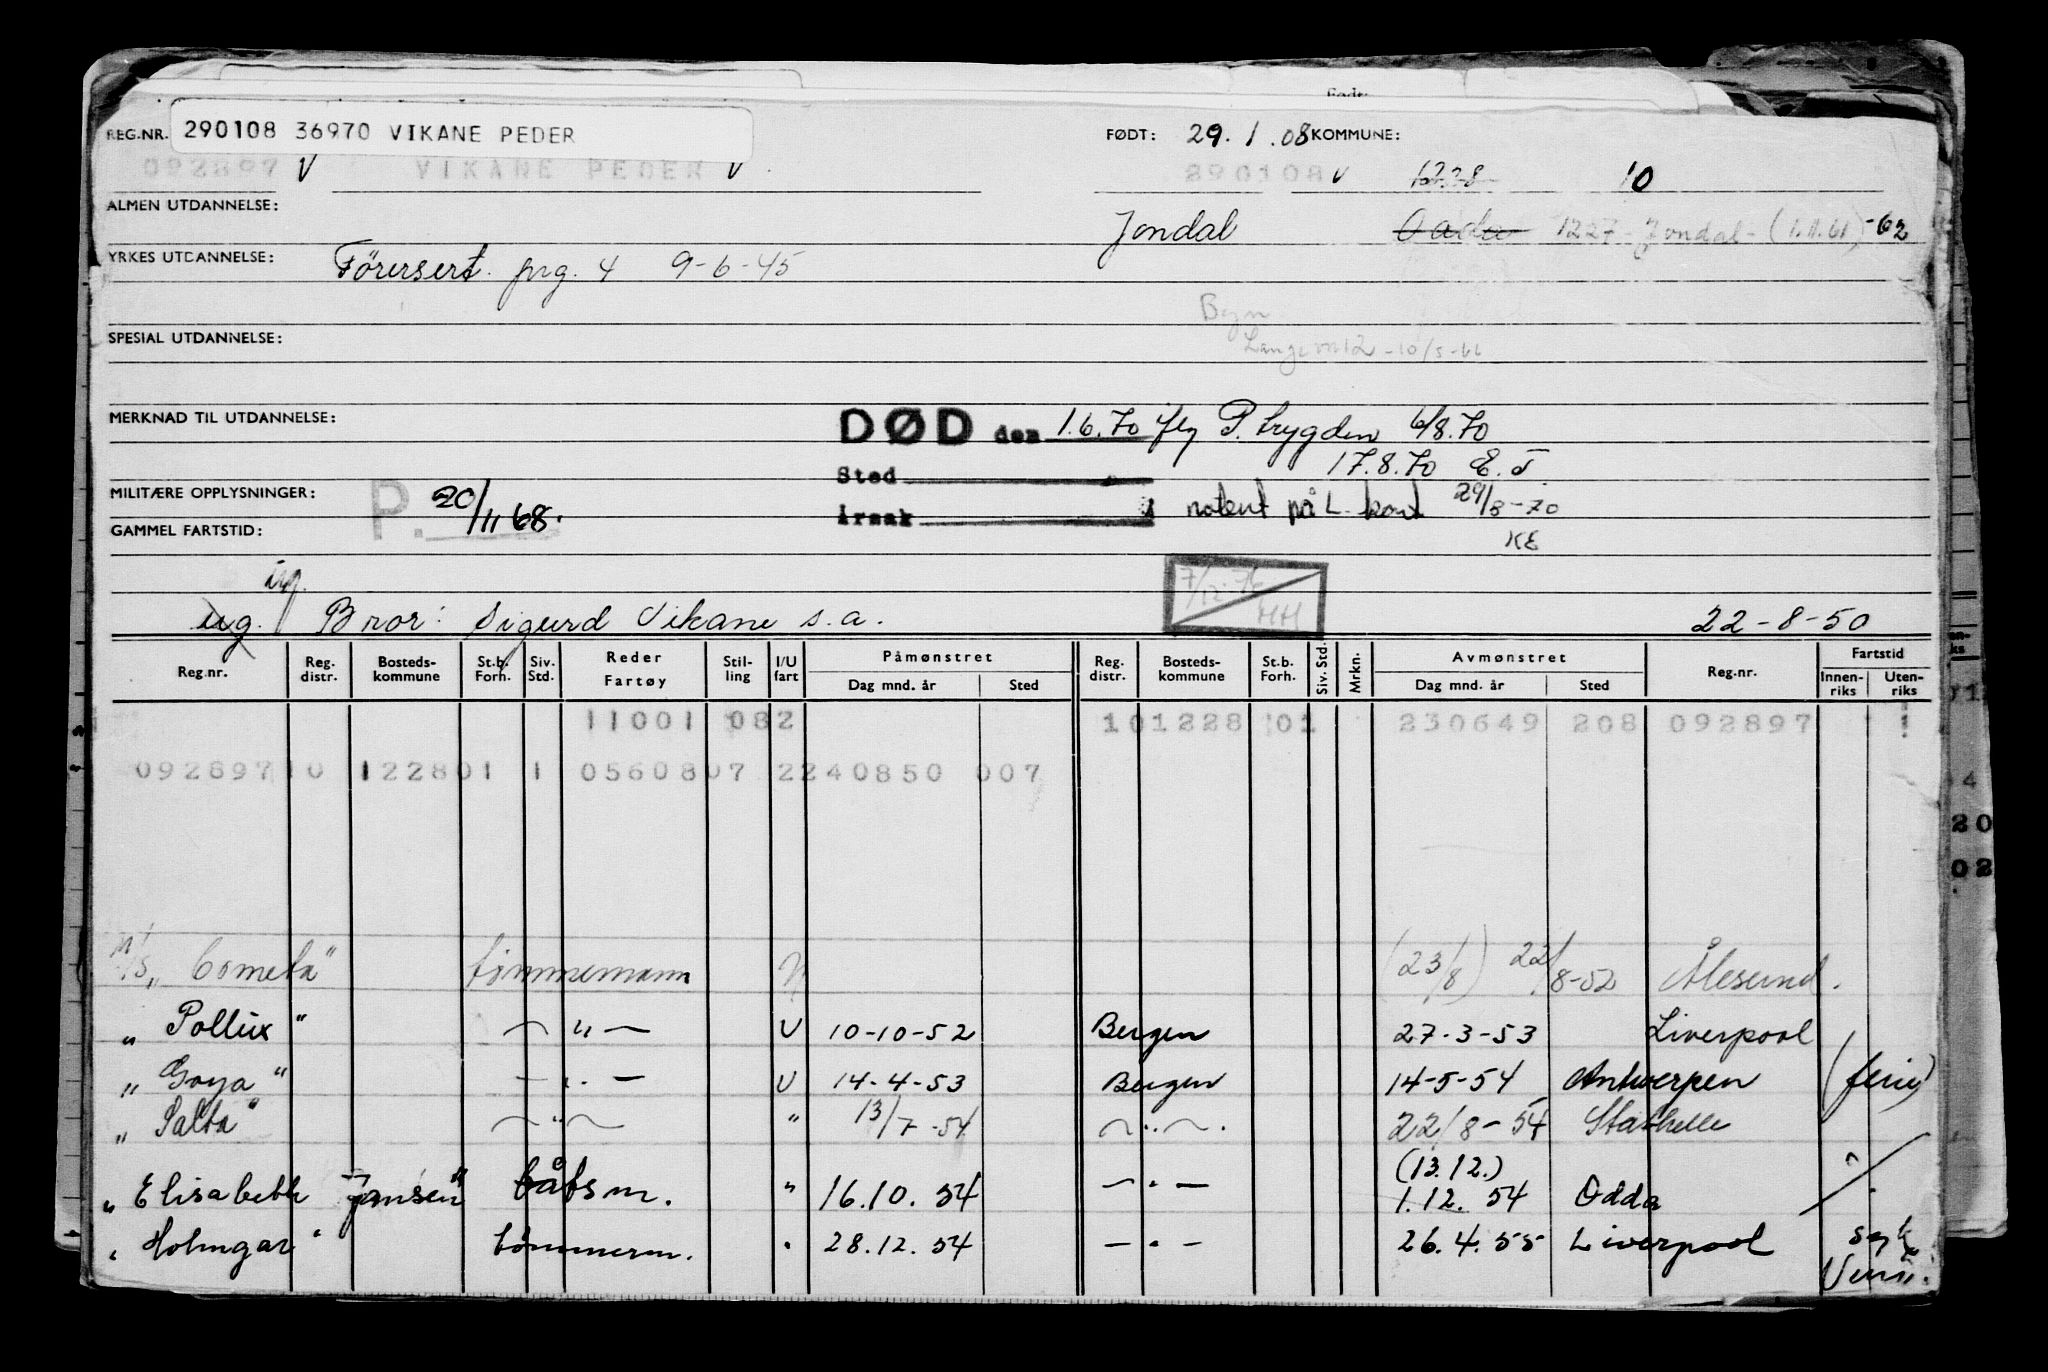 Født:
REG.NR. 290108 36970 VIKANE PEDER FØDT: 29.1.08 KOMMUNE:
092897 V VIKANE PEDER V 290108 V 1228 10
ALMEN UTDANNELSE:
Jondal Odda 1227 - Jondal - (1.11.61) -62
YRKES UTDANNELSE: Førersert. prg. 4 9-6-45
SPESIAL UTDANNELSE:
MERKNAD TIL UTDANNELSE:
DØD den 1.6.70 iflg P. trygden 6/8.70
Sted 17.8.70 E.T
MILITÆRE OPPLYSNINGER: P. 20/11 68.
Årsak notert på L. kort 29/8-70
GAMMEL FARTSTID: KE
ug.
7/12-76 HH
ug. Bror: Sigurd Vikane s.a. 22-8-50
Reg.nr. Reg. distr. Bosteds-kommune St.b. Forh. Siv. Std. Reder Fartøy Stil-ling I/U fart Påmønstret Dag mnd. år Sted Reg. distr. Bosteds-kommune St.b. Forh. Siv. Std. Mrkn. Avmønstret Dag mnd. år Sted Reg.nr. Fartstid Innen-riks Uten-riks
11001 082 101228 01 230649 208 092897
092897 10 122801 1 0560807 2240850 007
M/S „Cometa" tømmermann U (23/8) 22/8-52 Ålesund.
„ Pollux" — " — U 10-10-52 Bergen 27-3-53 Liverpool
„ Goya" — " — U 14-4-53 Bergen 14-5-54 Antwerpen (ferie)
„ Salta" — " — " 13/7-54 — " —. 22/8-54 Stathelle
(13.12.)
„ Elisabeth Jansen" båtsm. " 16.10.54 — " — 1.12.54 Odda
„ Holmgar" tømmerm. " 28.12.54 — " — 26.4.55 Liverpool syk